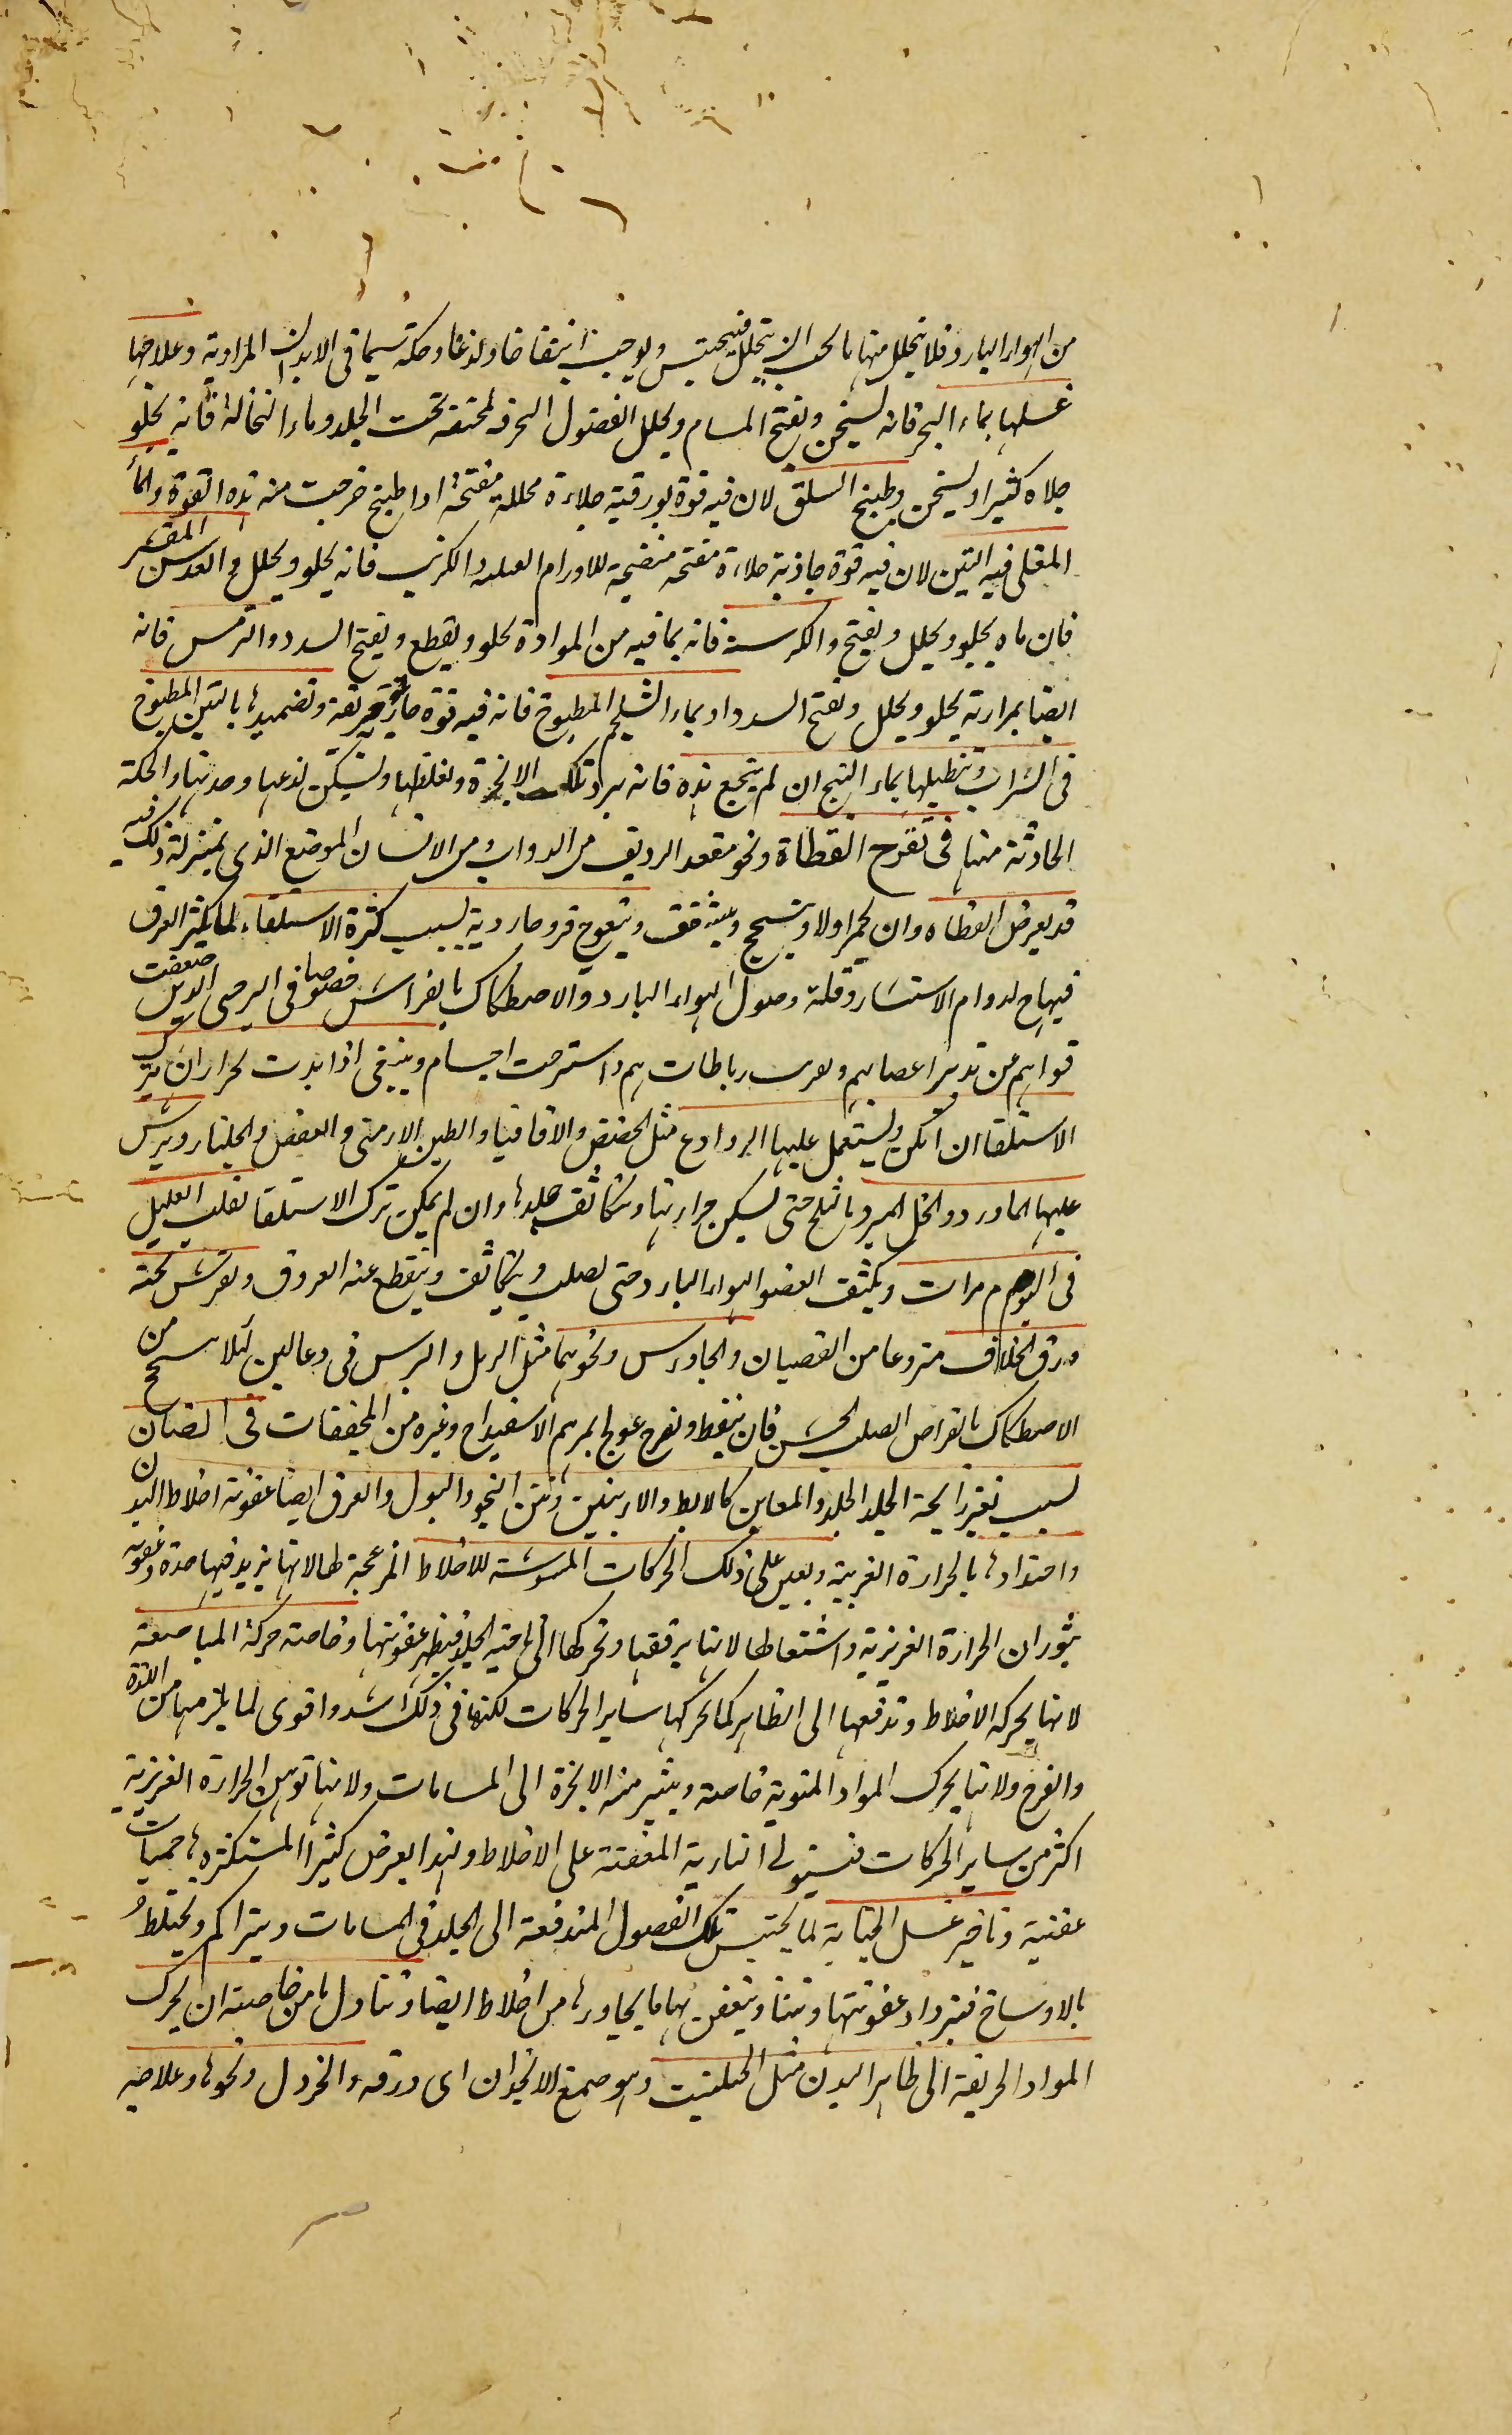 من الهواء البارد فلا يتحلل منها ما يجب ان يتحلل فيحتبس ويوجب انتفاخا ولذعا وحكة سيما فى الابدان المرارية وعلاجها
غسلها بماء البحر فانه يسخن ويفتح المسام ويحلل الفضول المحتقنة تحت الجلد وماء النخالة فانه يجلو
جلاء كثيرا ويسخن وطبيخ السلق لان فيه قوة بورقية جلاءة محللة مفتحة اذا طبخ خرجت منه هذه القوة والماء
المغلى فيه التين لان فيه قوة جاذبة جلاءة مفتحة منضجة للاورام الصلبة والكرنب فانه يجلو ويحلل والعدس المقشر
فان ماه يجلو ويحلل ويفتح والكرسنة فانه بما فيه من المرارة يجلو ويقطع ويفتح السدد والترمس فانه
ايضا بمرارته يجلو ويحلل ويفتح السدد او بماء الشلجم المطبوخ فانه فيه قوة حارة حريفة وتضميدها بالتين المطبوخ
فى الشراب وتنطيلها بماء البنج ان لم ينجع هذه فانه يبرد تلك الابخرة ويغلظها ويسكن لذعها وحدتها والحكة
الحادثة منها فى تقرح القطاة وهو مقعد الرديف من الدواب ومن الانسان الموضع الذى بمنزلة ذلك فيه
قد يعرض القطاه وان يحمر اولا ويتسحج ويتشقق ويتقرح قروحا ردية بسبب كثرة الاستلقاء لما يكثر العرق
فيها ح لدوام الاستتار وقلة وصول الهواء البارد والاصطكاك بالفراش خصوصا فى المرضى الذين ضعفت
قواهم من تدبير اعصابهم رباطات هم واسترخت اجسام وينبغى اذا بدت تحمر ان يترك
الاستلقا ان امكن ويستعمل عليها الروادع مثل الحضض والاقاقيا والطين الارمنى والعفص والجلنار ويرش
عليها الماورد والخل المبرد بالثلج حتى يسكن حرارتها ويتكاثف جلدها وان لم يمكن ترك الاستلقا تقلب العليل
فى اليوم مرات ويكشف العضو للهواء البارد حتى يصلب ويتكاثف وينقطع عنه العروق ويفرش تحته
ورق الخلاف منزوعا من القضبان والجاورس ونحوهما مثل الرمل والبرس فى وعا لين لئلا يسحج من
الاصطكاك بالفراش الصلب الخشن فان تنفط وتقرح عولج بمرهم الاسفيداج وغيره من المجففات فى الصنان
سبب تغير رايحة الجلد الجلد والمغابن كالابط والاربيتين ونتن النجو والبول والعرق ايضا عفونة اخلاط البدن
واحتدادها بالحرارة الغريبة ويعين على ذلك الحركات المشوشة للاخلاط المزعجة لها لانها يزيد فيها حدة وعفونة
بثوران الحرارة الغريزية واشتعالها لانها يرققها وتحركها الى ناحية الجلد فيظهر عفونتها وخاصته حركة المباضعة
لانها يحرك الاخلاط وتدفعها الى الظاهر كما تحركها ساير الحركات لكنها فى ذلك اشد واقوى لما يلزمها من اللذة
والفرح ولانها يحرك المواد المنوية خاصة ويثير منه الابخرة الى المسامات ولانها توهن الحرارة الغريزية
اكثر من ساير الحركات فيستولى النارية المعفنة على الاخلاط ولهذا يعرض كثيرا المستكثرها حميات
عفنية وتاخير غسل الجنابة لما يحتبس تلك الفضول المندفعة الى الجلد فى المسامات ويتراكم ويختلط
بالاوساخ فيزداد عفونتها ونتنا ويتعفن بها ما يجاورها من اخلاط ايضا وتناول ما من خاصيته ان يحرك
المواد الحريفة الى ظاهر البدن مثل الحلتيت وهو صمغ الانجدان اى ورقه والخردل ونحوها وعلاجه